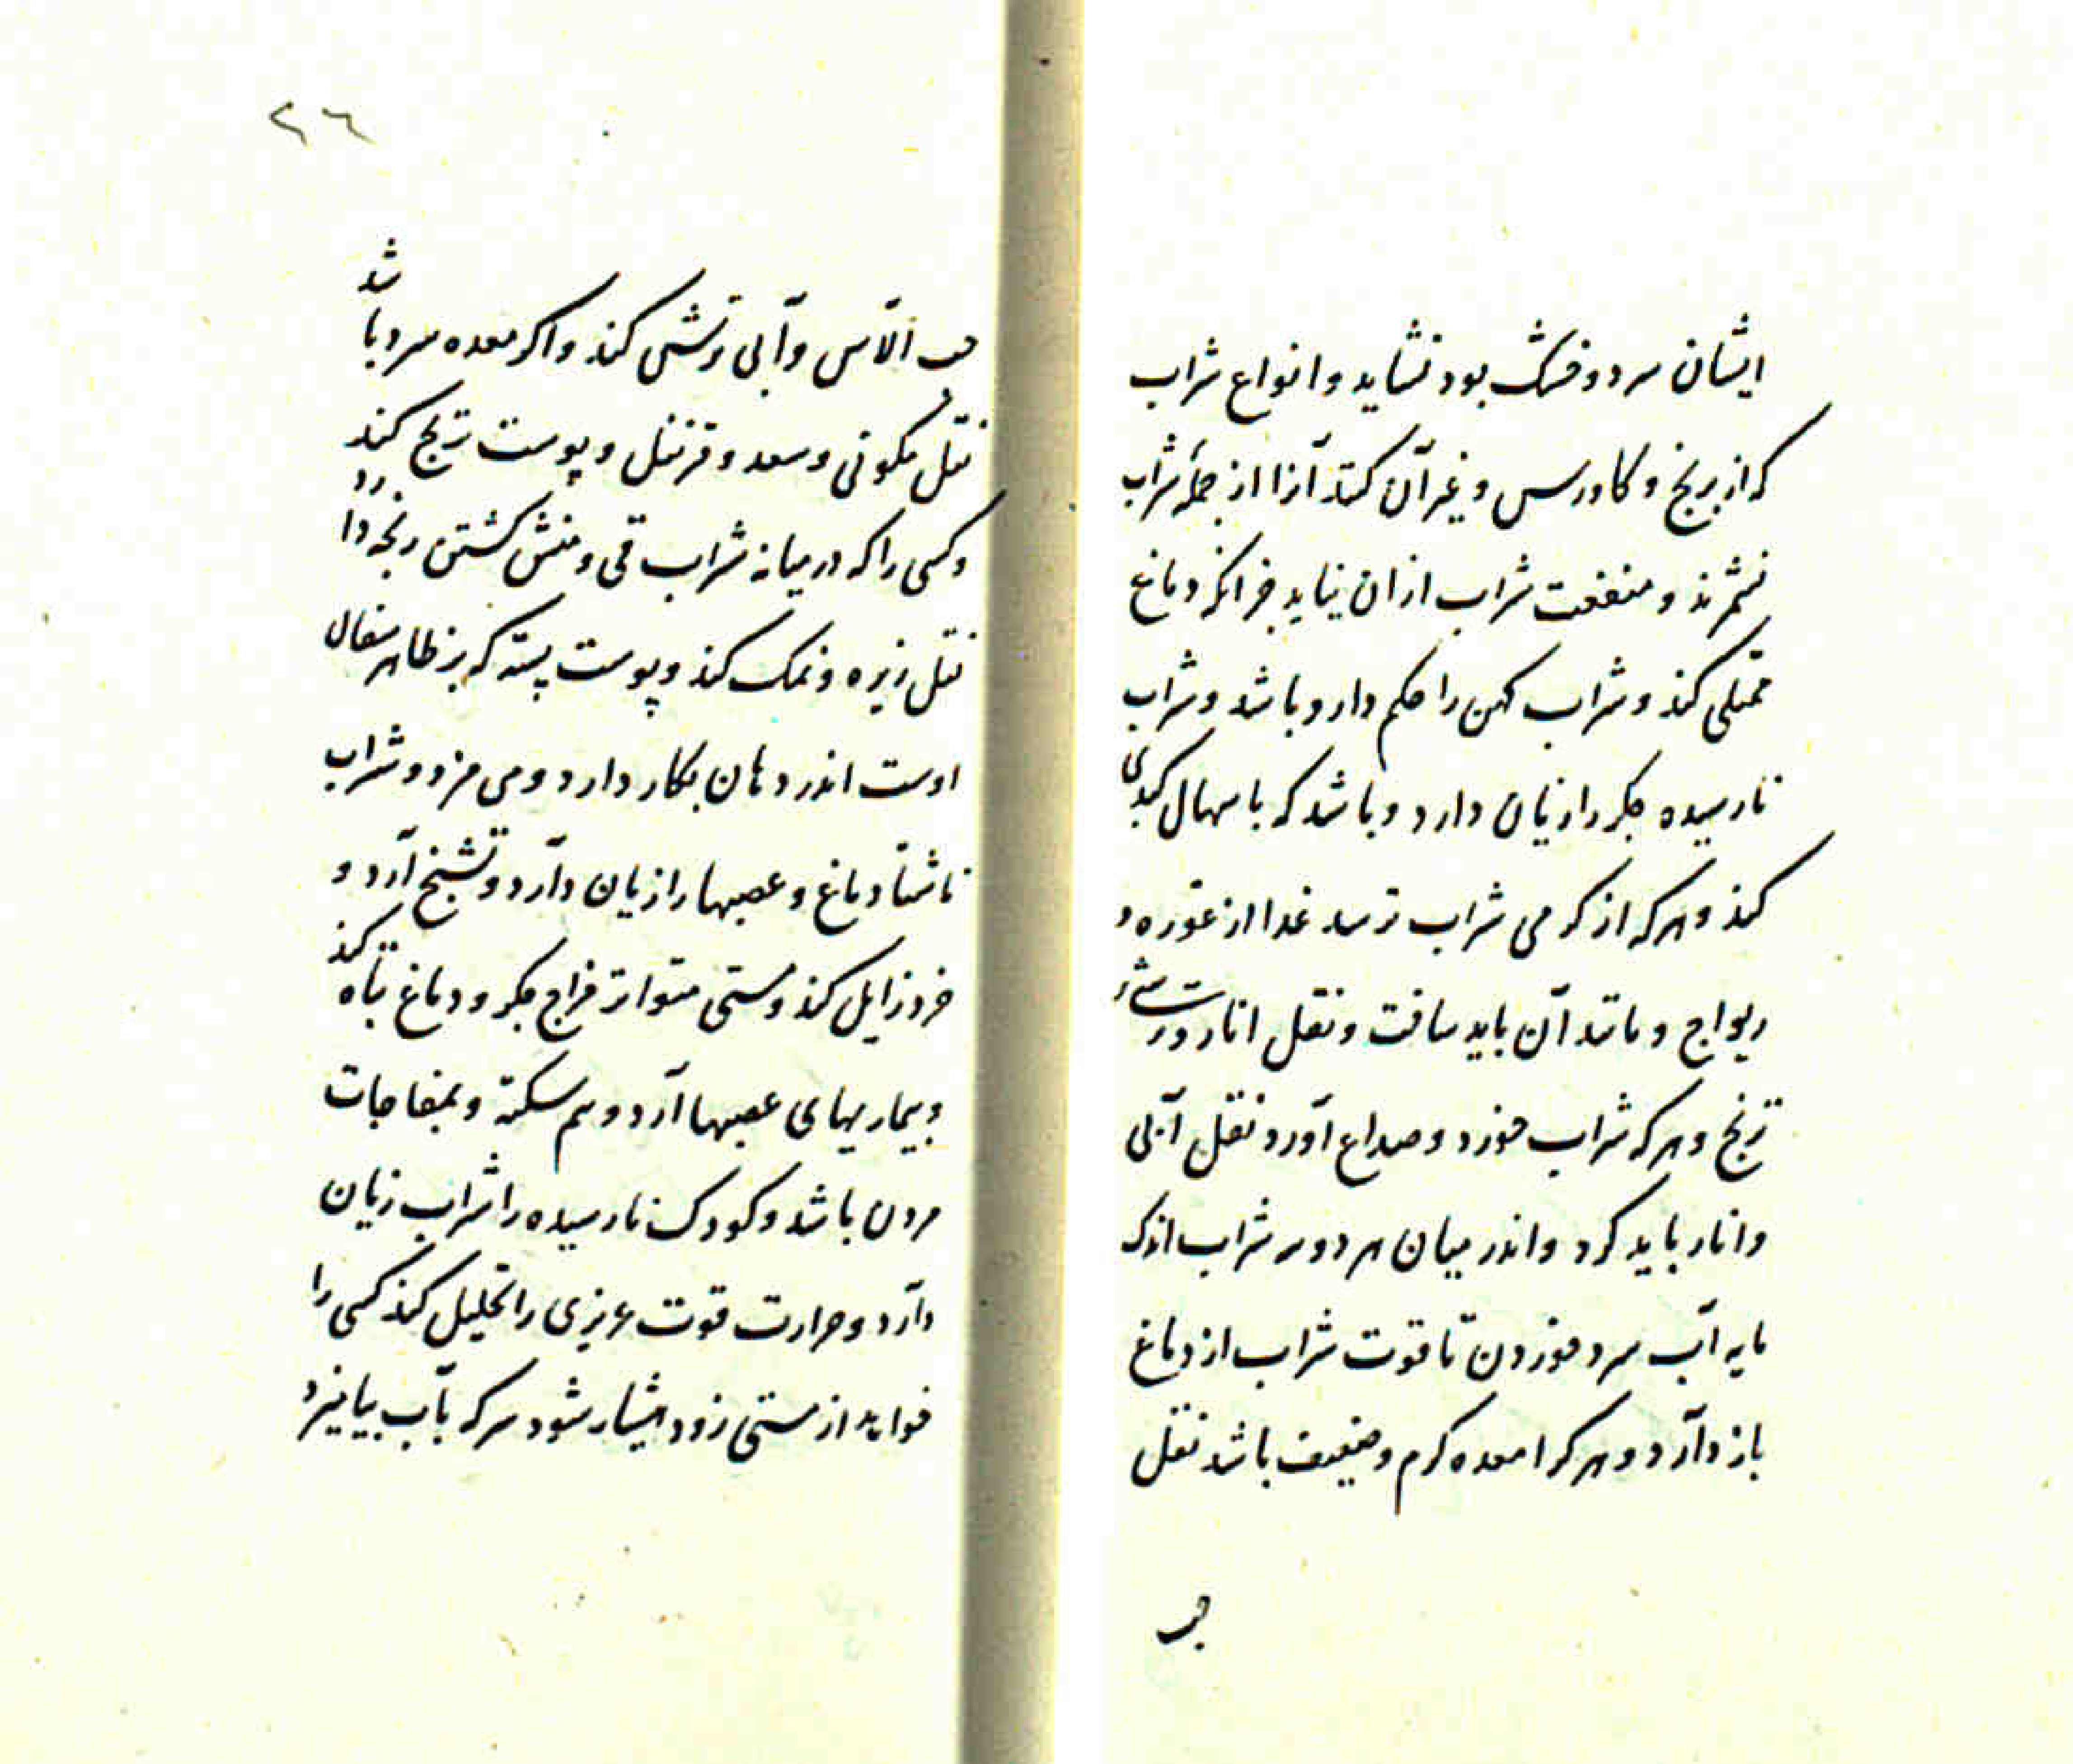 ایشان سرد و خشک بود نشاید و انواع شراب
که از برنج و کاورس و غیر آن کنند آنرا از جمله شراب
نشمرند و منفعت شراب ازان نیاید جز انکه دماغ
ممتلی کند و شراب کهن را حکم دارد باشد و شراب
نارسیده جکر را زیان دارد و باشد که باسهال کبدی
کند و هر که از کرمی شراب ترسد غدا از غوره و
ریواج و مانند آن باید ساخت و نقل انار و ترشی
ترنج و هر که شراب خورد و صداع آورد نقل آبی
و انار باید کرد و اندر میان هر دو سه شراب اندک
مایه آب سرد خوردن تا قوت شراب از دماغ
باز دآرد و هر کرا معده کرم و ضعیف باشد نقل
حب
۲٦
حب الآس و آبی ترشی کند و اکر معده سرد باشد
نقل کمونی و سعد و قرنفل و پوست ترنج کند
و کسی را که در میانه شراب قی و منش کشتن رنجه دارد
نقل زیره و نمک کند و پوست پسته که بر ظاهر سفال
اوست اندر دهان بکار دارد و می مزد و شراب
ناشتا دماغ و عصبها را زیان دآرد و تشنج آرد و
خرد زایل کند و مستی متواتر مزاج جکر و دماغ تباه کند
و بیماریهای عصبها آرد و هم سکته و بمفاجات
مردن باشد و کودک نارسیده را شراب زیان
دآرد و حرارت قوت عریزی را تحلیل کند کسی را
خواهد از مستی زود هشیار شود سرکه بآب بیامیزد